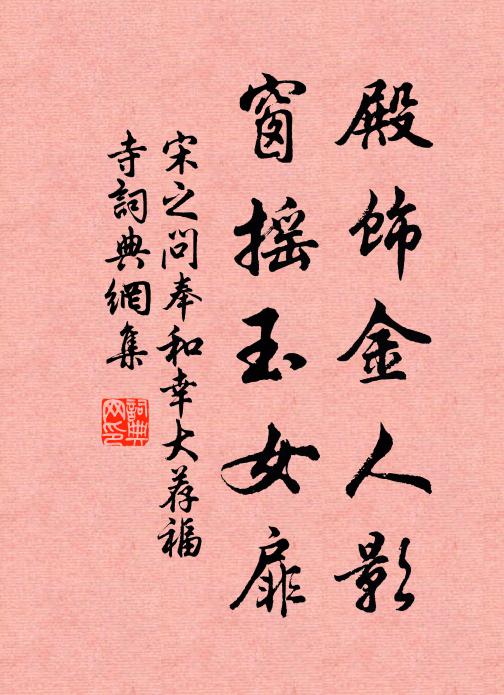 殿飾金人影
窗摇玉女扉
宋之问奉和幸大荐福
寺詞典網集
詞典
网印